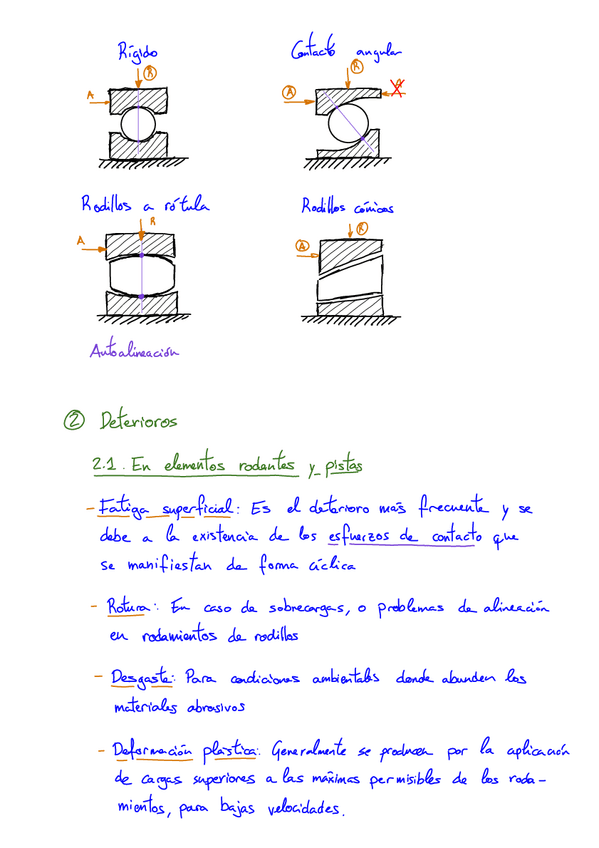 Rígido Contacto angular
R R
A A A
Rodillos a rótula Rodillos cónicos
R R
A A
Autoalineación
② Deterioros
2.1. En elementos rodantes y pistas
- Fatiga superficial: Es el deterioro más frecuente y se
debe a la existencia de los esfuerzos de contacto que
se manifiestan de forma cíclica
- Rotura: En caso de sobrecargas, o problemas de alineación
en rodamientos de rodillos
- Desgaste: Para condiciones ambientales donde abunden los
materiales abrasivos
- Deformación plástica: Generalmente se producen por la aplicación
de cargas superiores a las máximas permisibles de los roda-
mientos, para bajas velocidades.